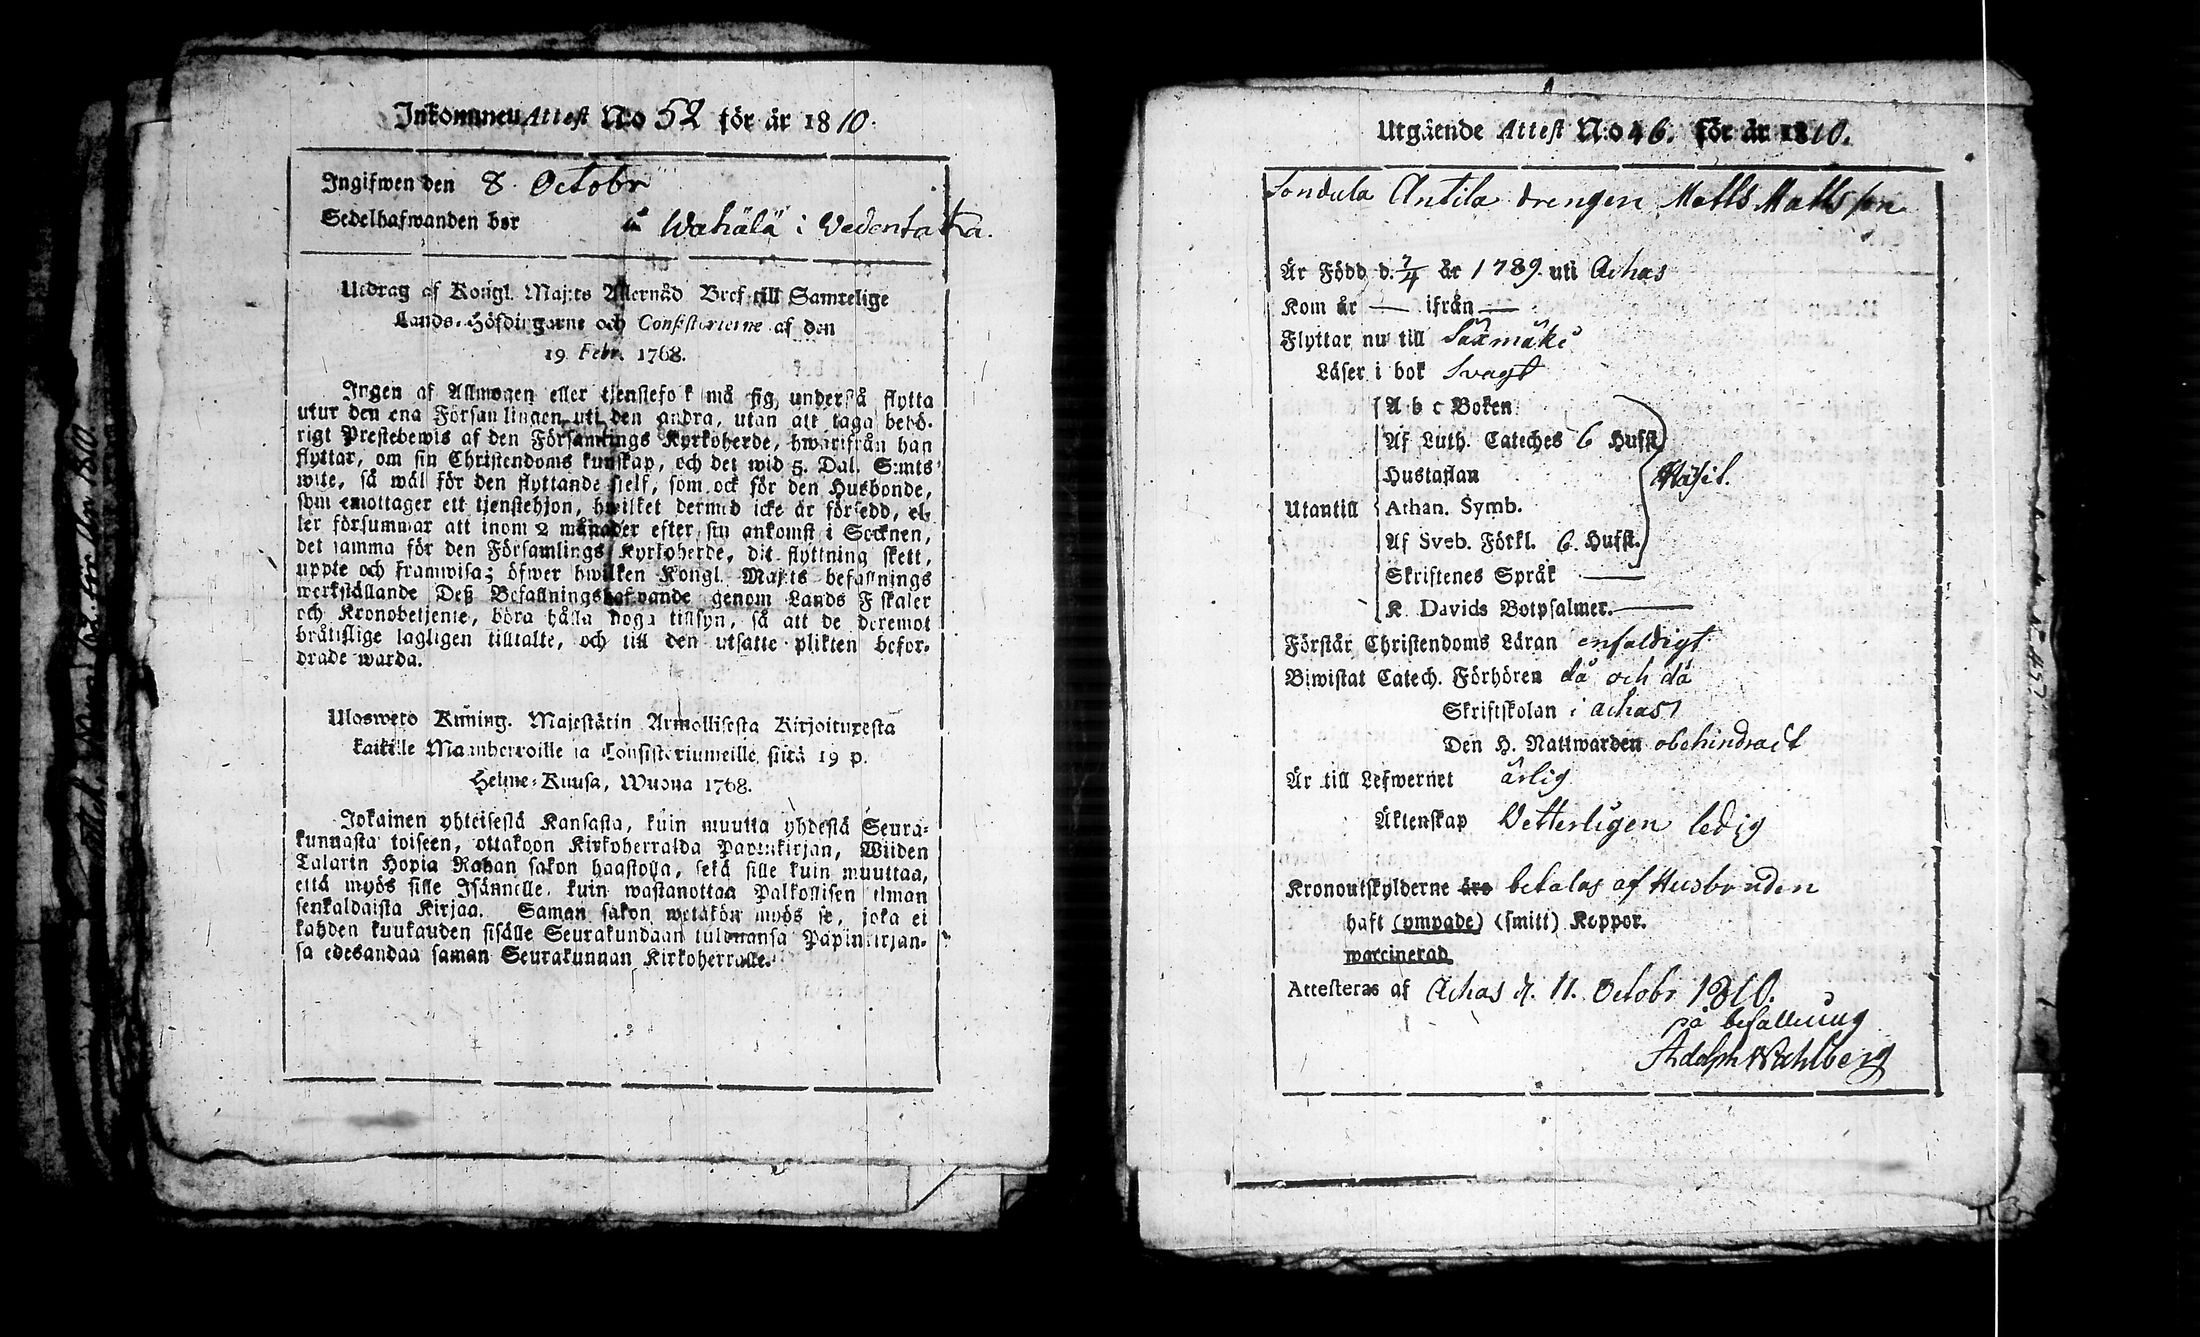 Inkommen Attest N:o 52 för år 1810.
Ingifwen den 8 Octobr
Sedelhafwanden bor å Wahälä i Wedentaka.
Utdrag af Kongl. Maj:ts Allernåd Bref till Samtelige
Lands-Höfdingarne och Consistorierne af den
19 Febr. 1768.
Ingen af Allmogen eller tjenstefolk må sig understå flytta
utur den ena Församlingen uti den andra, utan att taga behö-
rigt Prestebewis af den Församlings Kyrkoherde, hwarifrån han
flyttar, om sin Christendoms kunskap, och det wid 5. Dal. S:mts
wite, så wäl för den flyttande sielf, som ock för den Husbonde,
som emottager ett tjenstehjon, hwilket dermed icke är försedd, el-
ler försummar att inom 2 månader efter sin ankomst i Socknen,
det samma för den Församlings Kyrkoherde, dit flyttning skett,
uppte och framwisa; öfwer hwilken Kongl. Maj:ts befallnings
werkställande Deß Befallningshafwande genom Lands Fiskaler
och Kronobetjente, böra hålla noga tillsyn, så att de deremot
bråtislige lagligen tilltalte, och till den utsatte plikten befor-
drade warda.
Ulosweto Kuning. Majestätin Armollisesta Kirjoituxesta
kaikille Maanherroille ja Consistoriumeille, siitä 19 p.
Helme-Kuusa, Wuona 1768.
Jokainen yhteisestä Kansasta, kuin muutta yhdestä Seura-
kunnasta toiseen, ottakoon Kirkoherralda Papinkirjan, Wiiden
Talarin Hopia Rahan sakon haastolla, sekä sille kuin muuttaa,
että myös sille Isännelle, kuin wastanottaa Palkollisen ilman
senkaldaista Kirjaa. Saman sakon wetäkön myös se, joka ei
kahden kuukauden sisälle Seurakundaan tuldnansa Papinkirjan-
sa edesandaa saman Seurakunnan Kirkoherralle.
Utgående Attest N:o 46. för år 1810.
Sondula Antila drengen Matts Mattsson
Är Född d. 7/4 år 1789. uti Achas
Kom år — ifrån —
Flyttar nu till Säxmäki
Läser i bok Svagt
A b c Boken.
Af Luth. Cateches 6 Hufst.
Hustaflan
Utantill Athan. Symb.
Af Sveb. Förkl. 6. Hufst.
Skriftenes Språk —
K Davids Botpsalmer. —
Förstår Christendoms Läran enfaldigt
Biwistat Catech. Förhören då och då
Skriftskolan i Achas
Den H. Nattwarden obehindradt
Är till Lefwernet ärlig
Äktenskap Vetterligen ledig
Kronoutskylderne äro betalas af Husbonden
haft (ympade) (smitt) Koppor.
waccinerad
Attesteras af Achas d. 11. Octobr 1810.
på befallning
Adolph Wahlberg